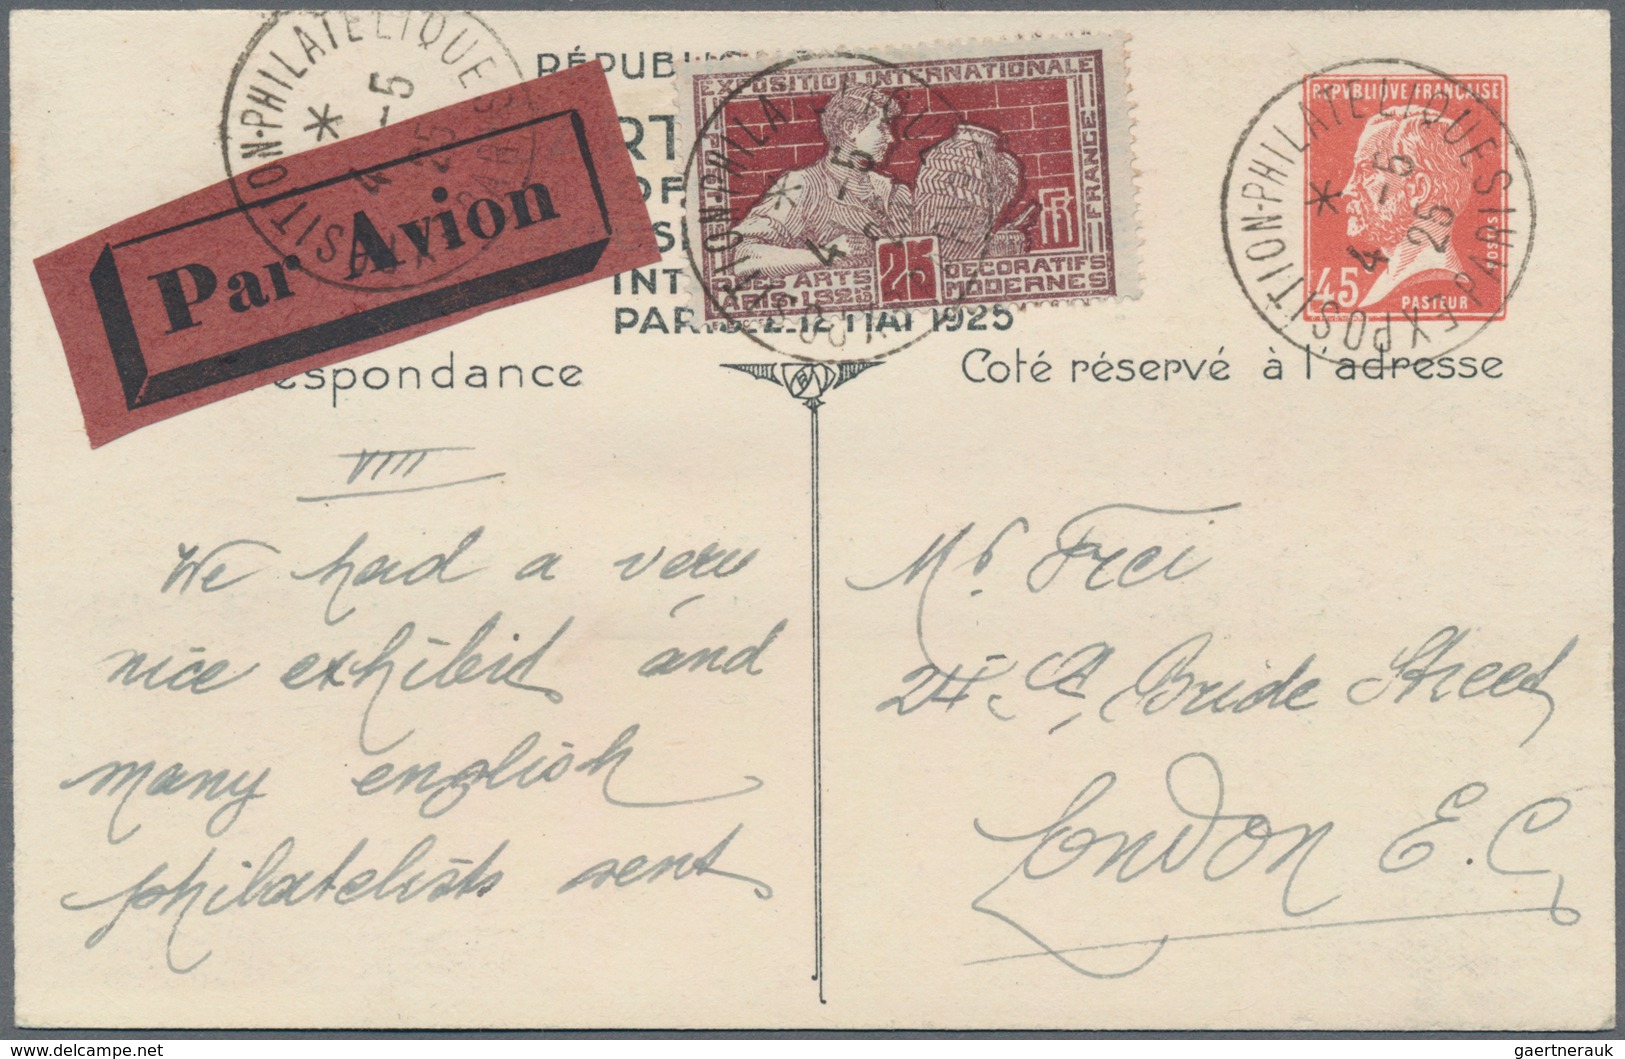 RÉPUBLI
Par Avion
EXPOSITION INTERNATIONALE
DES ARTS DECORATIFS
PARIS·1925 MODERNES
25
FRANCE
RF
REPVBLIQVE FRANÇAISE
POSTES
45c
PASTEUR
EXPOSITION-PHILATELIQUE PARIS
4 -5 25
EXPOSITION-PHILATELIQUE PARIS
4 -5
EXPOSITION-PHILATELIQUE PARIS
4 -5 25
INT
PARIS 2-12 MAI 1925
espondance
Coté réservé à l'adresse
VIII
We had a very
nice exhibit and
many english
philatelists sent
Mr Frei
St Bride Street
London E.C.
gaertnerauk